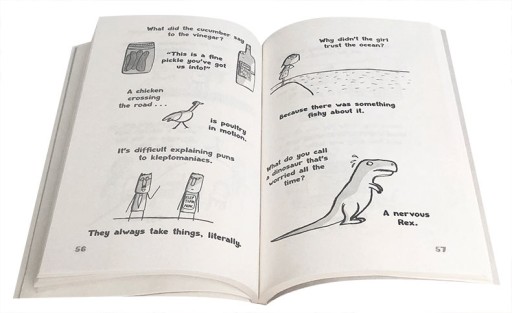 What did the cucumber say
to the vinegar?
"This is a fine
pickle you've got
us into!"
A chicken
crossing
the road . . .
is poultry
in motion.
It's difficult explaining puns
to kleptomaniacs.
They always take things, literally.
56
Why didn't the girl
trust the ocean?
Because there was something
fishy about it.
What do you call
a dinosaur that's
worried all the
time?
A nervous
Rex.
57